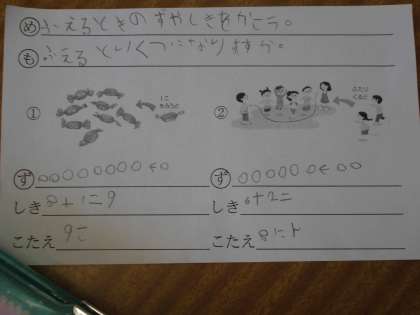 め ふえるときのずやしきをかこう。
も ふえるといくつになりますか。
① 1こ もらうと
② ふたり くると
ず ○○○○○○○○←○
ず ○○○○○○←○○
しき 8+1=9
しき 6+2=
こたえ 9こ
こたえ 8にん